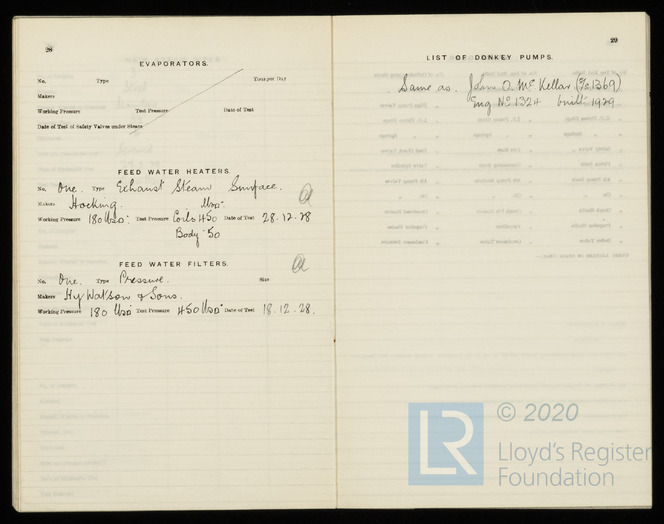 28
EVAPORATORS.
No. Type Tons per Day
Makers
Working Pressure Test Pressure Date of Test
Date of Test of Safety Valves under Steam
FEED WATER HEATERS.
No. One. Type Exhaust Steam Surface.
Makers Hocking. lbs.
Working Pressure 180 lbs. Test Pressure Coils 450 Date of Test 28.12.28
Body 50
FEED WATER FILTERS.
No. One. Type Pressure. Size
Makers Hy Watson & Sons.
Working Pressure 180 lbs Test Pressure 450 lbs Date of Test 18.12.28.
29
LIST OF DONKEY PUMPS.
Same as John O. McKellar (1369)
Eng No 1324 built 1929
LR © 2020
Lloyd's Register
Foundation